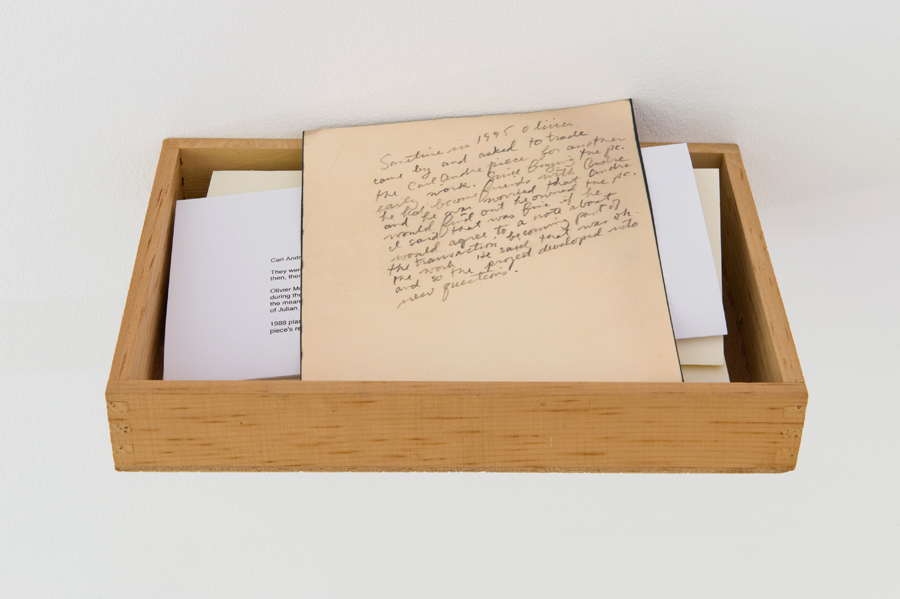 Carl Andr
They were
then, ther
Olivier Mo
during the
the mean
of Julian
1988 pla
piece's re
Sometime in 1995 Olivier
came by and asked to trade
the Carl Andre piece for another
early work. Since buying the pc.
he had become friends with Andre
and he was worried that Andre
would find out he owned the pc.
I said that was fine if he
would agree to a note about
the transaction becoming part of
the work. He said that was ok.
and so the project developed into
new questions.